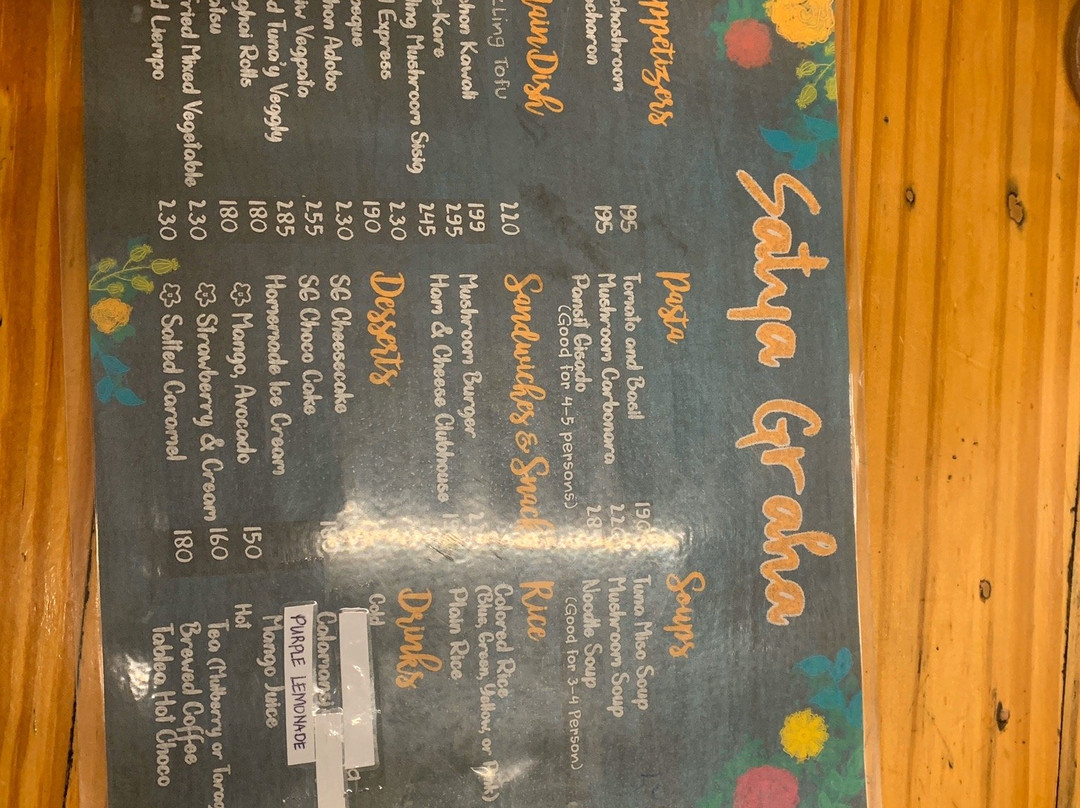 Satya Graha
ppetizers
chashroom 195
ncharron 195
Main Dish
zling Tofu 220
chon Kawali 199
e-Kare 295
ling Mushroom Sisig 245
l Express 230
peque 190
hon Adobo 230
iw Vegpata 255
d Tuna'y Veggly 285
ghai Rolls 180
atsu 180
Fried Mixed Vegetable 230
d Liempo 230
Pasta
Tomato and Basil
Mushroom Carbonara
Pansit Gisado
(Good for 4-5 persons)
Sandwiches & Snack
Mushroom Burger
Ham & Cheese Clubhouse
Desserts
SG Cheesecake
SG Choco Cake
Homemade Ice Cream
Mango, Avocado 150
Strawberry & Cream 160
Salted Caramel 180
Soups
Tuna Miso Soup
Mushroom Soup
Noodle Soup
(Good for 3-4 Person)
Rice
Colored Rice
(Blue, Green, Yellow, or Pink)
Plain Rice
Drinks
Cold
Calamansi
PURPLE LEMONADE
Mango Juice
Hot
Tea (Mulberry or Tarag
Brewed Coffee
Tablea, Hot Choco